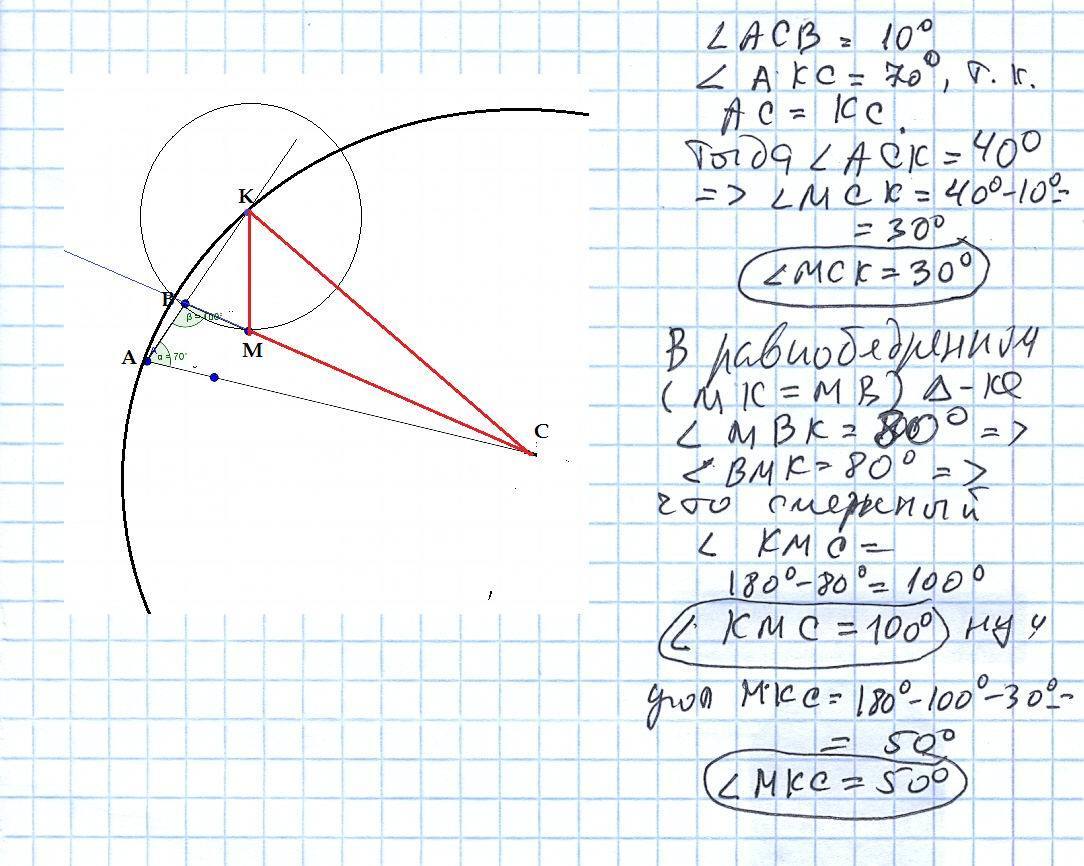 K
B
β = 100°
M
A
α = 70°
C
∠ACB = 10°
∠ AKC = 70°, т.к.
AC = KC.
Тогда ∠ACK = 40°
=> ∠MCK = 40°-10°=
= 30°
∠MCK = 30°
В равнобедренном
(MK = MB) Δ-ке
∠ MBK = 80° =>
∠BMK = 80° =>
что смежный
∠ KMC =
180°-80° = 100°
∠ KMC = 100° ну и
угол MKC = 180°-100°-30°=
= 50°
∠MKC = 50°